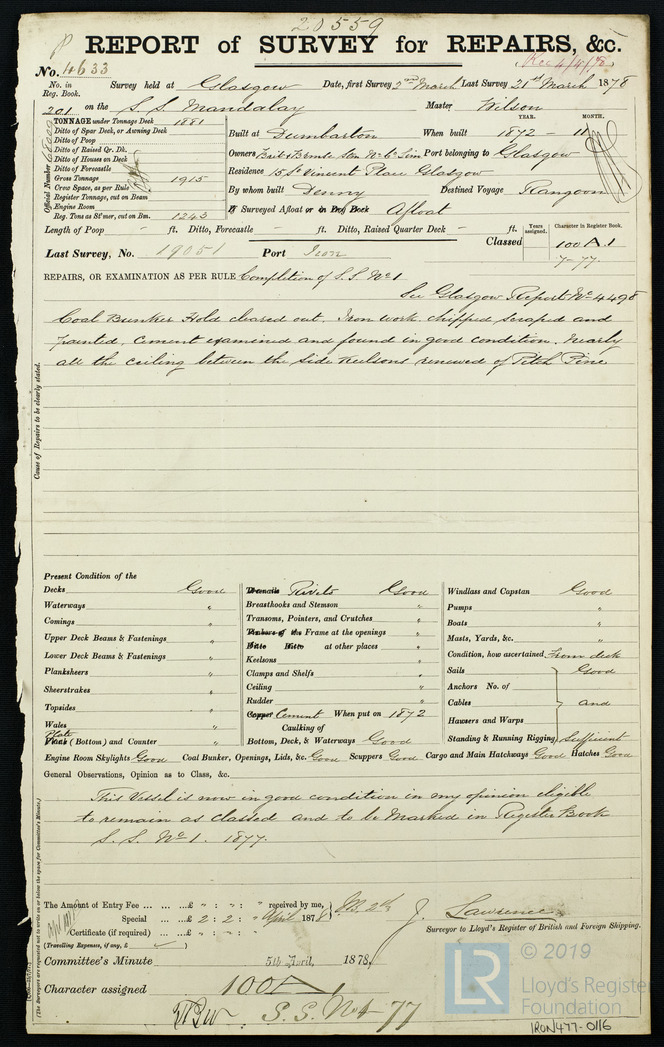 20559
REPORT of SURVEY for REPAIRS, &c.
No. 4633
Rec 4/4/78
No. in Reg. Book. Survey held at Glasgow Date, first Survey 2nd March Last Survey 21st March 1878
201 on the S.S. Mandalay Master Wilson
TONNAGE under Tonnage Deck 1881
Ditto of Spar Deck, or Awning Deck
Ditto of Poop
Ditto of Raised Qr. Dk.
Ditto of Houses on Deck
Ditto of Forecastle
Gross Tonnage 1915
Crew Space, as per Rule
Register Tonnage, out on Beam
Engine Room
Reg. Tons as St'mer, cut on Bm. 1243
Official Number
YEAR. MONTH.
Built at Dumbarton When built 1872 - 11
Owners Port belonging to Glasgow
Residence 15 St Vincent Place Glasgow
By whom built Denny Destined Voyage Rangoon
If Surveyed Afloat or in Dry Dock Afloat
Length of Poop - ft. Ditto, Forecastle - ft. Ditto, Raised Quarter Deck - ft.
Years assigned. Character in Register Book.
Classed 100 A.1
7-77.
Last Survey, No. 19051 Port Iron
REPAIRS, OR EXAMINATION AS PER RULE Completion of S.S. No 1
See Glasgow Report No 4498
Coal Bunker Hold cleared out, Iron work chipped scraped and
painted, cement examined and found in good condition. Nearly
all the ceiling between the side keelsons renewed of Pitch Pine
Cause of Repairs to be clearly stated.
Present Condition of the
Decks Good
Waterways "
Comings "
Upper Deck Beams & Fastenings "
Lower Deck Beams & Fastenings "
Planksheers "
Sheerstrakes "
Topsides "
Wales "
Plate
Plank (Bottom) and Counter "
Treenails Rivets Good
Breasthooks and Stemson "
Transoms, Pointers, and Crutches "
Timbers of the Frame at the openings "
Ditto Ditto at other places "
Keelsons "
Clamps and Shelfs "
Ceiling "
Rudder "
Copper Cement When put on 1872
Caulking of
Bottom, Deck, & Waterways Good
Windlass and Capstan Good
Pumps "
Boats "
Masts, Yards, &c. "
Condition, how ascertained From deck
Sails Good
Anchors No. of
Cables and
Hawsers and Warps
Standing & Running Rigging Sufficient
Engine Room Skylights Good Coal Bunker, Openings, Lids, &c. Good Scuppers Good Cargo and Main Hatchways Good Hatches Good
General Observations, Opinion as to Class, &c.
This Vessel is now in good condition in my opinion eligible
to remain as Classed and to be Marked in Register Book
S.S. No 1. 1877.
The Amount of Entry Fee ... ... ...£ " : " : " received by me,
Special ... ...£ 2 : 2 : " April 1878
Certificate (if required) ... ...£ " : " : "
(Travelling Expenses, if any, £ )
J. Lawrence
Surveyor to Lloyd's Register of British and Foreign Shipping.
Committee's Minute 5th April, 1878,
Character assigned 100A1
S.S. No 1-77
(The Surveyors are requested not to write on or below the space for Committee's Minute.)
LR
© 2019
Lloyd's Register
Foundation
IRON477-0116